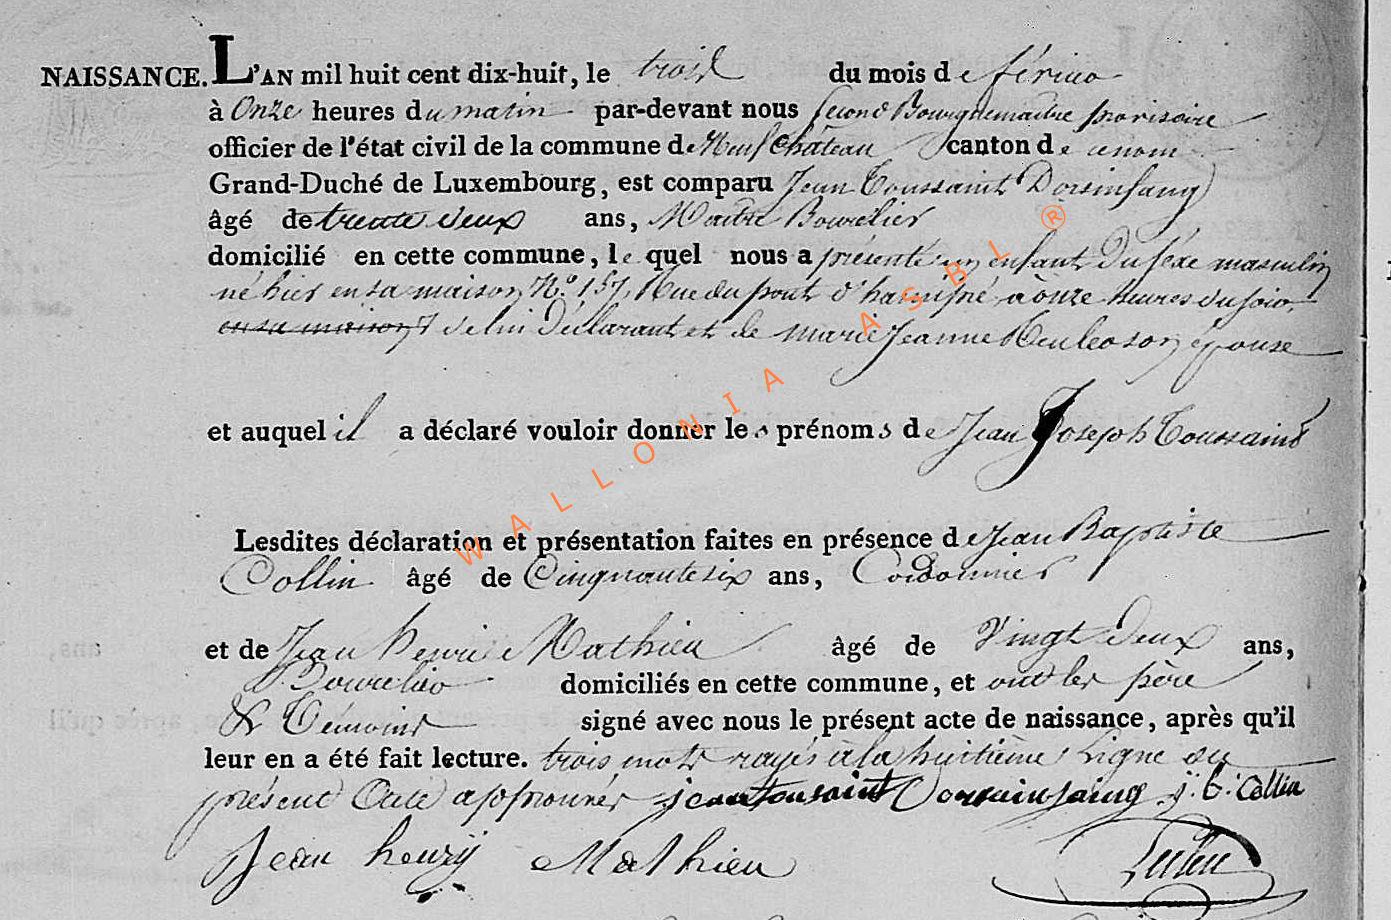 NAISSANCE. L'AN mil huit cent dix-huit, le trois du mois de février
à Onze heures du matin par-devant nous second Bourguemaitre provisoire
officier de l'état civil de la commune de Neufchâteau canton de cenom
Grand-Duché de Luxembourg, est comparu Jean Toussaint Dorsinfang
âgé de trente deux ans, Maitre Bourelier
domicilié en cette commune, le quel nous a présenté un enfant du sexe masculin
né hier en sa maison N.º 157, Rue du pont d'harnipré à onze heures du soir
en sa maison de lui Déclarant et de marie Jeanne son épouse
et auquel il a déclaré vouloir donner les prénoms de Jean Joseph Toussaint
Lesdites déclaration et présentation faites en présence de Jean Baptiste
Collin âgé de Cinquante six ans, Cordonnier
et de Jean henri Mathieu âgé de Vingt deux ans,
Bourelier domiciliés en cette commune, et ont les père
& Témoins signé avec nous le présent acte de naissance, après qu'il
leur en a été fait lecture. trois mots rayés à la huitième Ligne du
présent Acte approuvés jean tousaint Dorsainfaing j: b: Collin
Jean henry Mathieu
WALLONIA ASBL ®